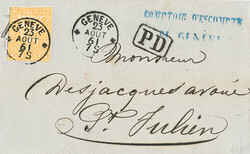 GENÈVE
23
AOUT
61
7S
GENÈVE
23
AOUT
61
7S
COMPTOIR D'ESCOMPTE
DE GENÈVE
PD
Monsieur
Desjacques avoué
St. Julien